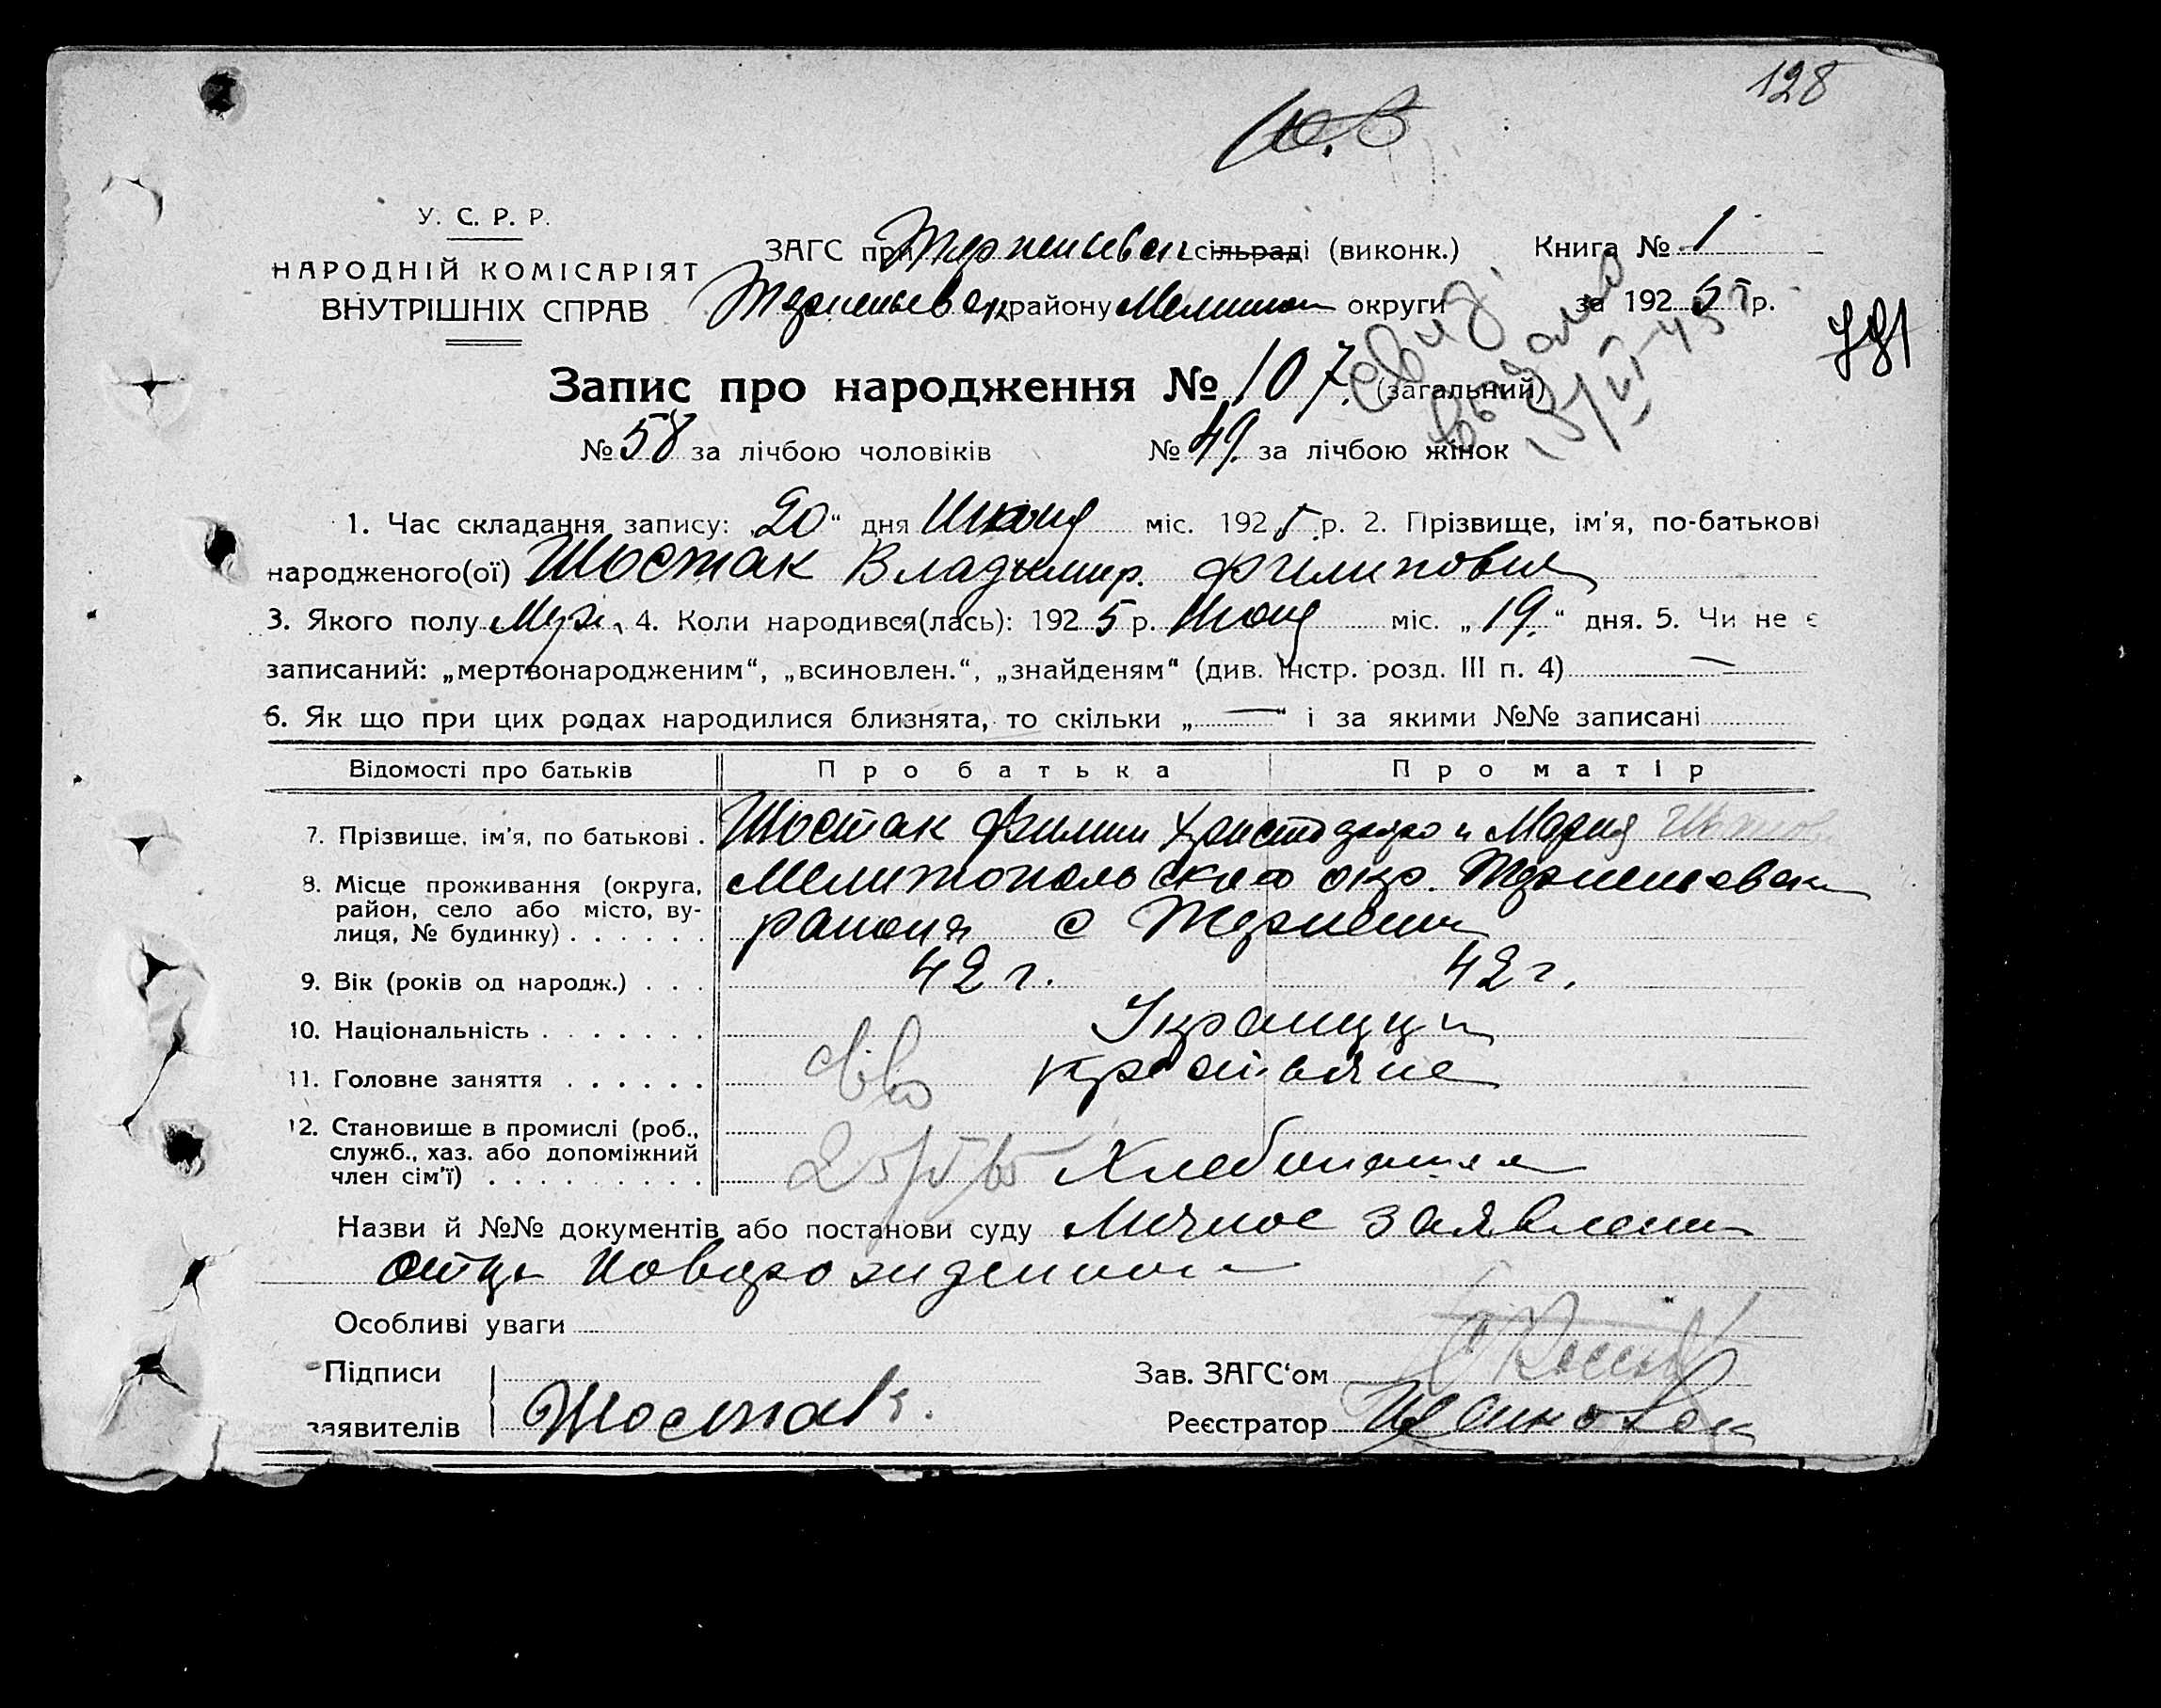 128
У. С. Р. Р.
НАРОДНІЙ КОМІСАРІЯТ
ВНУТРІШНІХ СПРАВ
ЗАГС при сільраді (виконк.) Книга № 1
району Мелитоп округи за 1925 р.
781
Запис про народження № 107. (загальний)
№ 58 за лічбою чоловіків № 49. за лічбою жінок
1. Час складання запису: 20 “ дня Июня міс. 1925 р. 2. Прізвище, ім'я, по-батькові
народженого(ої) Шостак Владимир. Филипович
3. Якого полу Муж. 4. Коли народився(лась): 1925 р. Июня міс. „ 19. “ дня. 5. Чи не є
записаний: „мертвонародженим“, „всиновлен.“, „знайденям“ (див. інстр. розд. III п. 4) —
6. Як що при цих родах народилися близнята, то скільки „ — “ і за якими №№ записані
Відомості про батьків Про батька Про матір
7. Прізвище, ім'я, по батькові . Шостак Филип и Мария
8. Місце проживання (округа, Мелитопольского окр.
район, село або місто, ву- района с
лиця, № будинку) . . . . . .
9. Вік (років од народж.) . . . 42 г. 42 г.
10. Національність . . . . . . . Украинцы
11. Головне заняття . . . . . . крестьяне
12. Становище в промислі (роб.,
служб., хаз. або допоміжний
член сім'ї) . . . . . . . . . Хлебопашцы
Назви й №№ документів або постанови суду Личное заявление
отца Новорожденного
Особливі уваги
Підписи Зав. ЗАГС‘ом
заявителів Шостак. Реєстратор